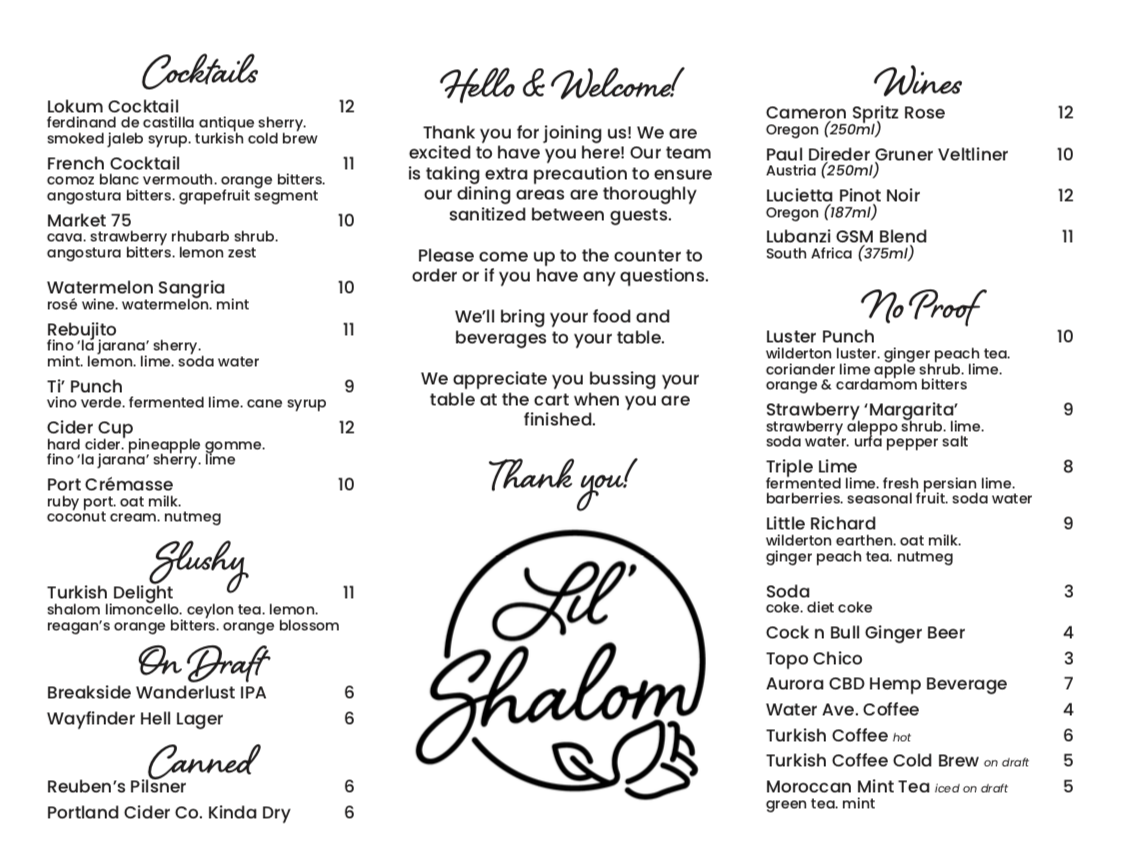 Cocktails
Lokum Cocktail 12
ferdinand de castilla antique sherry.
smoked jaleb syrup. turkish cold brew
French Cocktail 11
comoz blanc vermouth. orange bitters.
angostura bitters. grapefruit segment
Market 75 10
cava. strawberry rhubarb shrub.
angostura bitters. lemon zest
Watermelon Sangria 10
rosé wine. watermelon. mint
Rebujito 11
fino ‘la jarana’ sherry.
mint. lemon. lime. soda water
Ti’ Punch 9
vino verde. fermented lime. cane syrup
Cider Cup 12
hard cider. pineapple gomme.
fino ‘la jarana’ sherry. lime
Port Crémasse 10
ruby port. oat milk.
coconut cream. nutmeg
Slushy
Turkish Delight 11
shalom limoncello. ceylon tea. lemon.
reagan’s orange bitters. orange blossom
On Draft
Breakside Wanderlust IPA 6
Wayfinder Hell Lager 6
Canned
Reuben’s Pilsner 6
Portland Cider Co. Kinda Dry 6
Hello & Welcome!
Thank you for joining us! We are
excited to have you here! Our team
is taking extra precaution to ensure
our dining areas are thoroughly
sanitized between guests.
Please come up to the counter to
order or if you have any questions.
We’ll bring your food and
beverages to your table.
We appreciate you bussing your
table at the cart when you are
finished.
Thank you!
Lil’
Shalom
Wines
Cameron Spritz Rose 12
Oregon (250ml)
Paul Direder Gruner Veltliner 10
Austria (250ml)
Lucietta Pinot Noir 12
Oregon (187ml)
Lubanzi GSM Blend 11
South Africa (375ml)
No Proof
Luster Punch 10
wilderton luster. ginger peach tea.
coriander lime apple shrub. lime.
orange & cardamom bitters
Strawberry ‘Margarita’ 9
strawberry aleppo shrub. lime.
soda water. urfa pepper salt
Triple Lime 8
fermented lime. fresh persian lime.
barberries. seasonal fruit. soda water
Little Richard 9
wilderton earthen. oat milk.
ginger peach tea. nutmeg
Soda 3
coke. diet coke
Cock n Bull Ginger Beer 4
Topo Chico 3
Aurora CBD Hemp Beverage 7
Water Ave. Coffee 4
Turkish Coffee hot 6
Turkish Coffee Cold Brew on draft 5
Moroccan Mint Tea iced on draft 5
green tea. mint